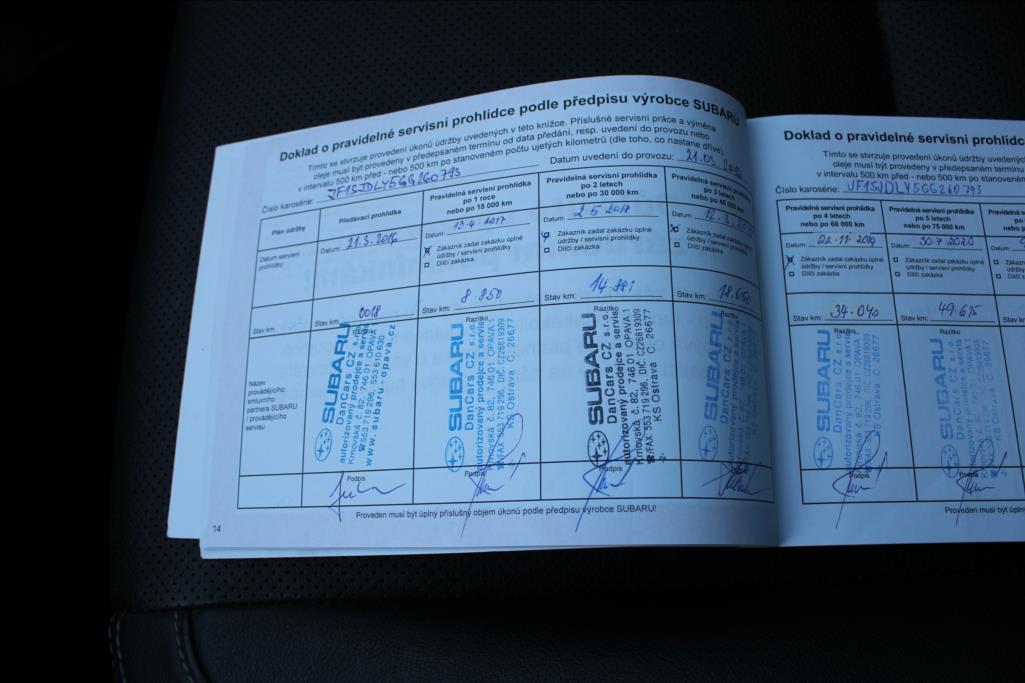 Doklad o pravidelné servisní prohlídce podle předpisu výrobce SUBARU
Tímto se stvrzuje provedení úkonů údržby uvedených v této knížce. Příslušné servisní práce a výměna
oleje musí být provedeny v předepsaném termínu od data předání, resp. uvedení do provozu nebo
v intervalu 500 km před - nebo 500 km po stanoveném počtu ujetých kilometrů (dle toho, co nastane dříve).
Číslo karosérie: JF1SJDLY5GG260793 Datum uvedení do provozu: 21.03.
Plán údržby
Předávací prohlídka
Pravidelná servisní prohlídka
po 1 roce
nebo po 15 000 km
Pravidelná servisní prohlídka
po 2 letech
nebo po 30 000 km
Pravidelná servisní prohlídka
po 3 letech
nebo po 45 000 km
Datum servisní
prohlídky
Datum: 21.3.2016
Datum: 13.4.2017
Zákazník zadal zakázku úplné
údržby / servisní prohlídky
Dílčí zakázka
Datum: 2.5.2018
Zákazník zadal zakázku úplné
údržby / servisní prohlídky
Dílčí zakázka
Datum: 12.3.
Zákazník zadal zakázku úplné
údržby / servisní prohlídky
Dílčí zakázka
Stav km
Stav km: 0018
Stav km: 8.950
Stav km: 14.881
Stav km: 18.050
Název
provádějícího
smluvního
partnera SUBARU
/ provádějícího
servisu
Razítko
SUBARU
DanCars CZ s.r.o.
autorizovaný prodejce a servis
Krnovská č. 82, 746 01 OPAVA
☎553 719 296, 553 610 630
www.subaru-opava.cz
Razítko
SUBARU
DanCars CZ s.r.o.
autorizovaný prodejce a servis
Krnovská č. 82, 746 01 OPAVA 1
☎/FAX: 553 719 296, DIČ: CZ26819309
KS Ostrava C. 26677
Razítko
SUBARU
DanCars CZ s.r.o.
autorizovaný prodejce a servis
Krnovská č. 82, 746 01 OPAVA 1
☎/FAX: 553 719 296, DIČ: CZ26819309
KS Ostrava C. 26677
Razítko
SUBARU
DanCars CZ s.r.o.
autorizovaný prodejce a servis
Krnovská č. 82, 746 01 OPAVA 1
☎/FAX: 553 719 296, DIČ: CZ26819309
KS Ostrava C. 26677
Podpis
Podpis
Podpis
Podpis
Proveden musí být úplný příslušný objem úkonů podle předpisu výrobce SUBARU!
14
Doklad o pravidelné servisní prohlídc
Tímto se stvrzuje provedení úkonů údržby uvedenýc
oleje musí být provedeny v předepsaném termínu o
v intervalu 500 km před - nebo 500 km po stanoveném
Číslo karosérie: JF1SJDLY5GG260793
Pravidelná servisní prohlídka
po 4 letech
nebo po 60 000 km
Pravidelná servisní prohlídka
po 5 letech
nebo po 75 000 km
Datum: 22.11.2019
Zákazník zadal zakázku úplné
údržby / servisní prohlídky
Dílčí zakázka
Datum: 30.7.2020
Zákazník zadal zakázku úplné
údržby / servisní prohlídky
Dílčí zakázka
Stav km: 34.040
Stav km: 49.615
Razítko
SUBARU
Razítko
SUBARU
Podpis
Podpis
Proveden musí být úpln